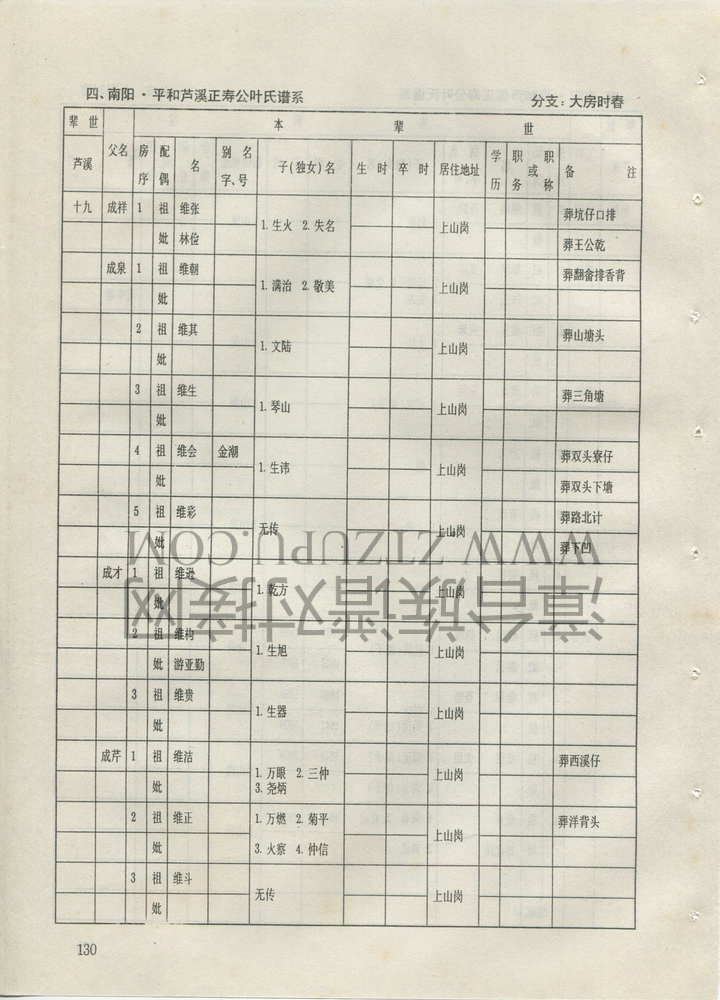 四、南阳·平和芦溪正寿公叶氏谱系 分支：大房时春
辈世 父名 本辈世
芦溪 房序 配偶 名 别名字、号 子(独女)名 生时 卒时 居住地址 学历 职务或职称 备注
十九 成祥 1 祖 维张 1.生火 2.失名 上山岗 葬坑仔口排
妣 林俭 葬王公乾
成泉 1 祖 维朝 1.满治 2.敬美 上山岗 葬翻畲排香背
妣
2 祖 维其 1.文陆 上山岗 葬山塘头
妣
3 祖 维生 1.琴山 上山岗 葬三角塘
妣
4 祖 维会 金潮 1.生讳 上山岗 葬双头寮仔
妣 葬双头下塘
5 祖 维彩 无传 上山岗 葬路北计
妣 葬下凹
成才 1 祖 维逊 1.乾方 上山岗
妣
2 祖 维构 1.生旭 上山岗
妣 游亚勤
3 祖 维贵 1.生器 上山岗
妣
成芹 1 祖 维洁 1.万眼 2.三仲 上山岗 葬西溪仔
妣 3.尧炳
2 祖 维正 1.万燃 2.菊平 上山岗 葬洋背头
妣 3.火察 4.仲信
3 祖 维斗 无传 上山岗
妣
130
WWW.ZTZUPU.COM
漳台族谱对接网